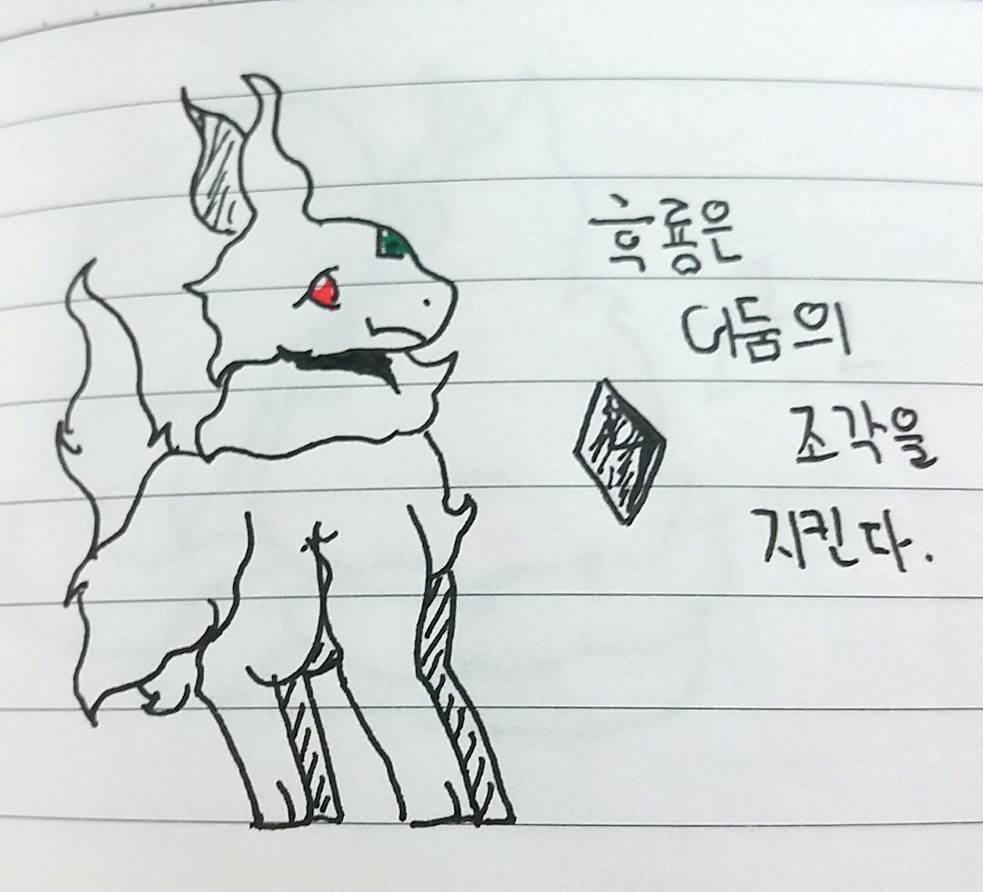 흑룡은
어둠의
조각을
지킨다.